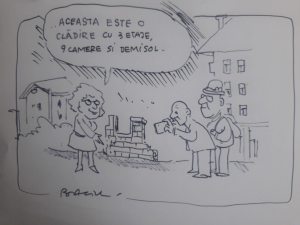 ACEASTA ESTE O
CLĂDIRE CU 3 ETAJE,
9 CAMERE SI DEMISOL.